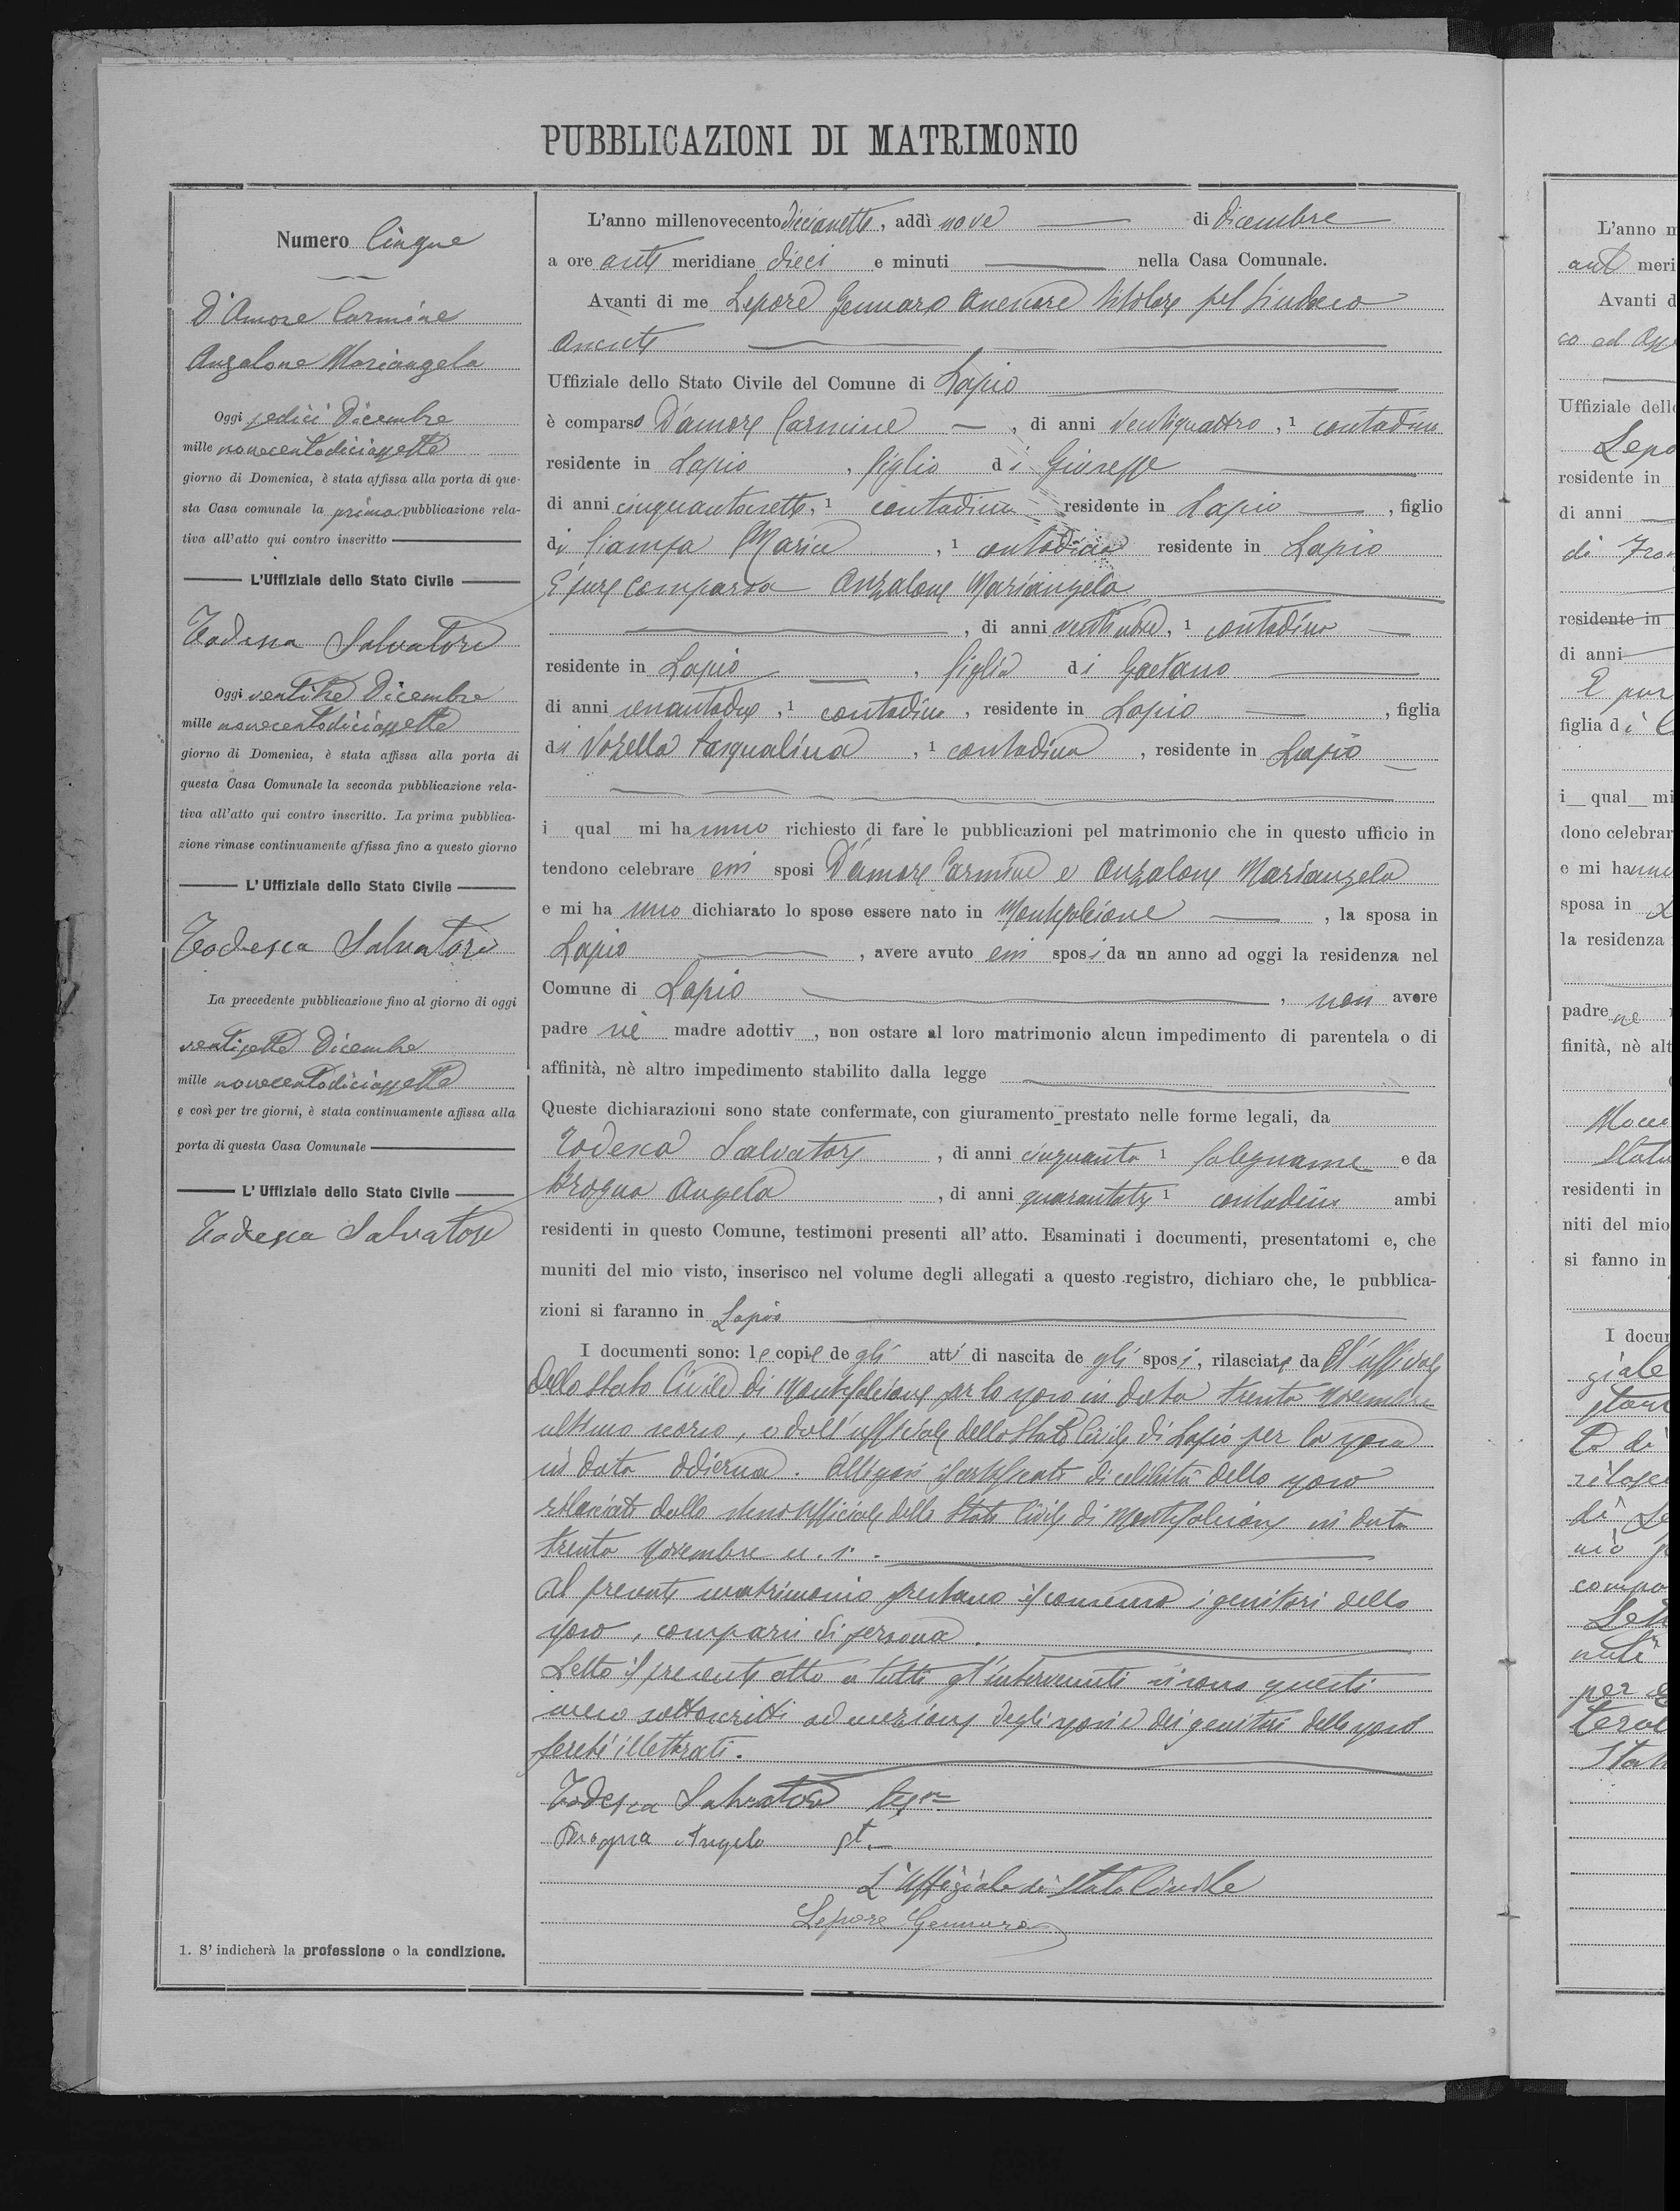 PUBBLICAZIONI DI MATRIMONIO
Numero Cinque
D'Amore Carmine
Anzalone Mariangela
Oggi sedici Dicembre
mille novecentodiciassette
giorno di Domenica, è stata affissa alla porta di que-
sta Casa comunale la prima pubblicazione rela-
tiva all'atto qui contro inscritto
L'Uffiziale dello Stato Civile
Todesca Salvatore
Oggi ventitre Dicembre
mille novecentodiciassette
giorno di Domenica, è stata affissa alla porta di
questa Casa Comunale la seconda pubblicazione rela-
tiva all'atto qui contro inscritto. La prima pubblica-
zione rimase continuamente affissa fino a questo giorno
L'Uffiziale dello Stato Civile
Todesca Salvatore
La precedente pubblicazione fino al giorno di oggi
ventisette Dicembre
mille novecentodiciassette
e così per tre giorni, è stata continuamente affissa alla
porta di questa Casa Comunale
L'Uffiziale dello Stato Civile
Todesca Salvatore
1. S'indicherà la professione o la condizione.
L'anno millenovecentodiciassette, addì nove di Dicembre
a ore anti meridiane dieci e minuti nella Casa Comunale.
Avanti di me Lepore Gennaro assessore pel Sindaco
assente
Uffiziale dello Stato Civile del Comune di Lapio
è comparso D'amore Carmine, di anni ventiquattro, 1 contadino
residente in Lapio, figlio di Giuseppe
di anni cinquantasette, 1 contadino residente in Lapio, figlio
di Ciampa Maria, 1 contadina residente in Lapio
E pure comparsa Anzalone Mariangela
, di anni , 1 contadina
residente in Lapio, figlia di Gaetano
di anni , 1 contadino, residente in Lapio, figlia
di Vozella Pasqualina, 1 contadina, residente in Lapio
i qual mi hanno richiesto di fare le pubblicazioni pel matrimonio che in questo ufficio in
tendono celebrare essi sposi D'amore Carmine e Anzalone Mariangela
e mi hanno dichiarato lo sposo essere nato in Montefalcione, la sposa in
Lapio, avere avuto essi sposi da un anno ad oggi la residenza nel
Comune di Lapio, non avere
padre nè madre adottiv , non ostare al loro matrimonio alcun impedimento di parentela o di
affinità, nè altro impedimento stabilito dalla legge
Queste dichiarazioni sono state confermate, con giuramento prestato nelle forme legali, da
Todesca Salvatore, di anni cinquanta 1 falegname e da
Brogna Angelo, di anni quarantatre 1 contadino ambi
residenti in questo Comune, testimoni presenti all'atto. Esaminati i documenti, presentatomi e, che
muniti del mio visto, inserisco nel volume degli allegati a questo registro, dichiaro che, le pubblica-
zioni si faranno in Lapio
I documenti sono: le copie degli atti di nascita degli sposi, rilasciate dall'ufficiale
dello Stato Civile di Montefalcione per lo sposo in data trenta Novembre
ultimo scorso, e dall'ufficiale dello Stato Civile di Lapio per la sposa
in data odierna. certificato di celibità dello sposo
rilasciato dallo stesso ufficiale dello Stato Civile di Montefalcione in data
trenta Novembre u. s.
Al presente matrimonio prestano il consenso i genitori dello
sposo, comparsi di persona.
Letto il presente atto a tutti gl'intervenuti si sono questi
meco sottoscritti ad eccezione degli sposi e dei genitori dello sposo
perchè illetterati.
Todesca Salvatore
Brogna Angelo
L'Uffiziale di Stato Civile
Lepore Gennaro
L'anno m
ant meri
Avanti d
co ed
Uffiziale dello
Lepo
residente in
di anni
di
residente in
di anni
E pur
figlia di
i qual mi
dono celebrar
e mi hanno
sposa in
la residenza
padre ne
finità, nè alt
residenti in
niti del mio
si fanno in
I docum